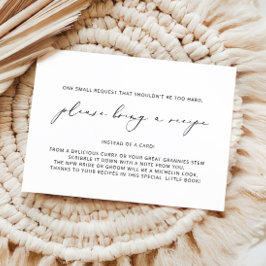 ONE SMALL REQUEST THAT SHOULDN'T BE TOO HARD,
please bring a recipe
INSTEAD OF A CARD!
FROM A DELICIOUS CURRY OR YOUR GREAT GRANNIES STEM
SCRIBBLE IT DOWN WITH A NOTE FROM YOU.
THE NEW BRIDE OR GROOM WILL BE A MICHELIN COOK,
THANKS TO YOUR RECIPES IN THIS SPECIAL LITTLE BOOK!